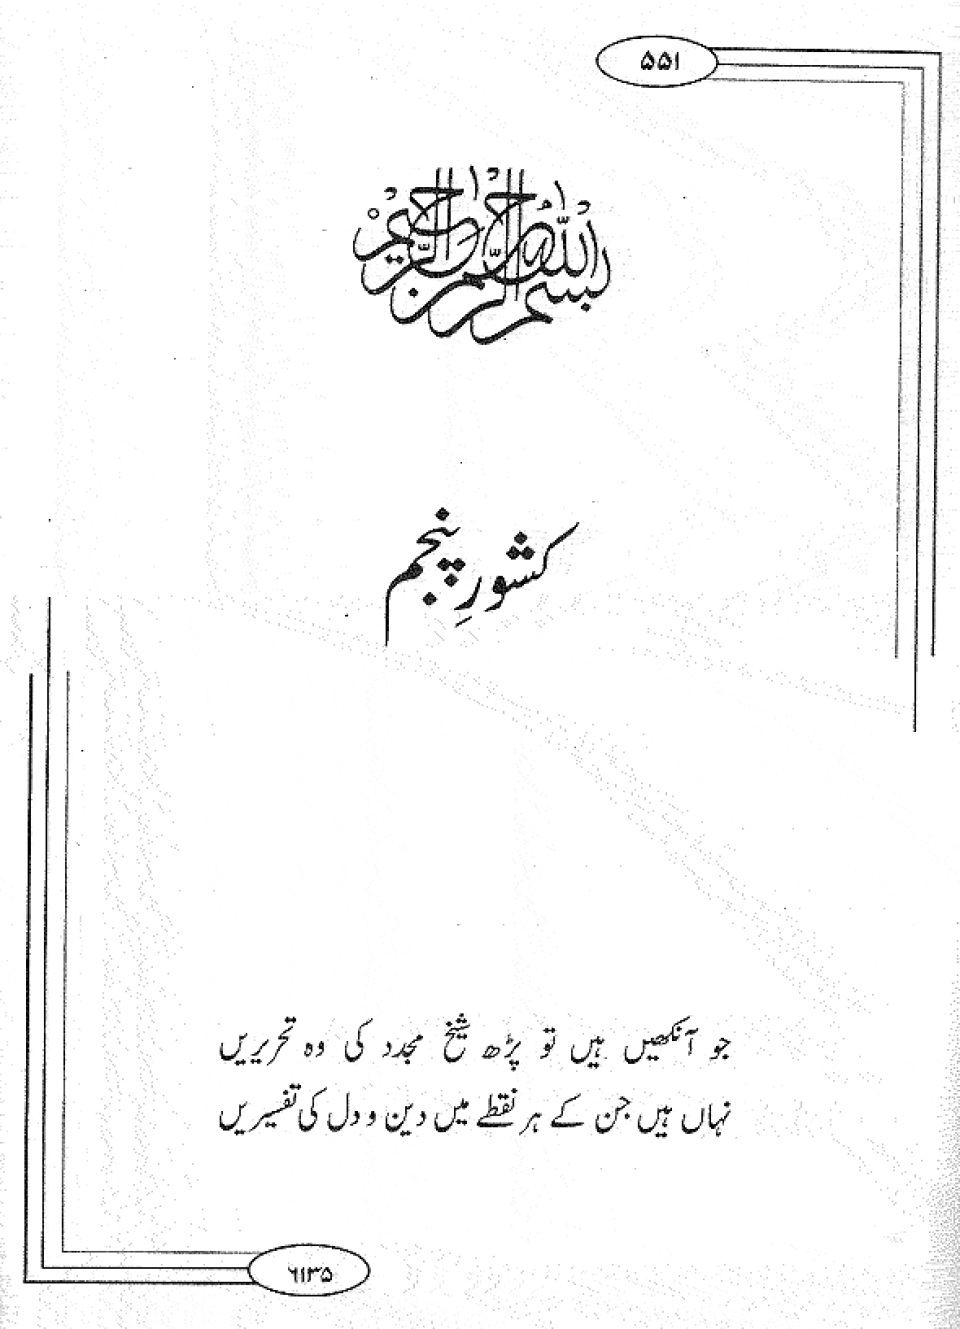 ۵۵۱
بسم الله الرحمن الرحيم
کشورِ پنجم
جو آنکھیں ہیں تو پڑھ شیخ مجدد کی وہ تحریریں
نہاں ہیں جن کے ہر نقطے میں دین و دل کی تفسیریں
۶۱۳۵